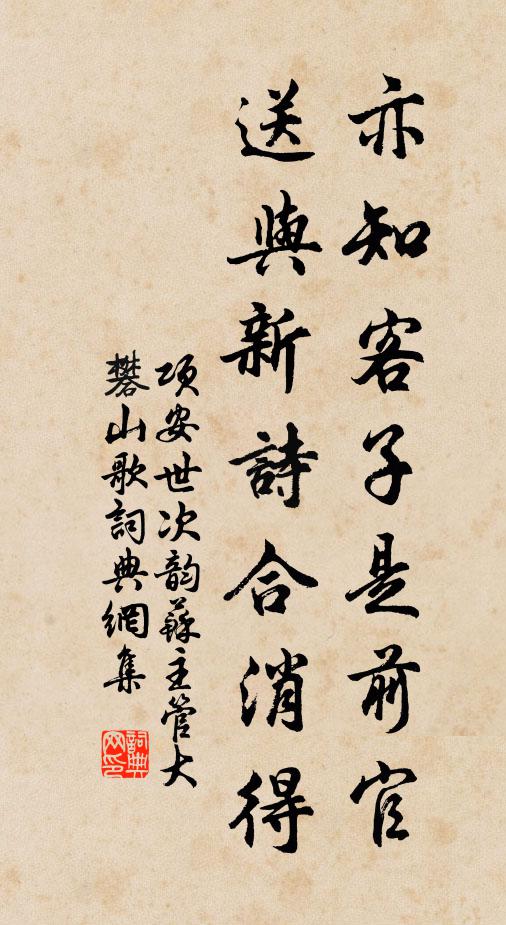 亦知客子是前官
送與新詩合消得
項安世次韵蘇主管大
礬山歌詞典網集
詞典
网印